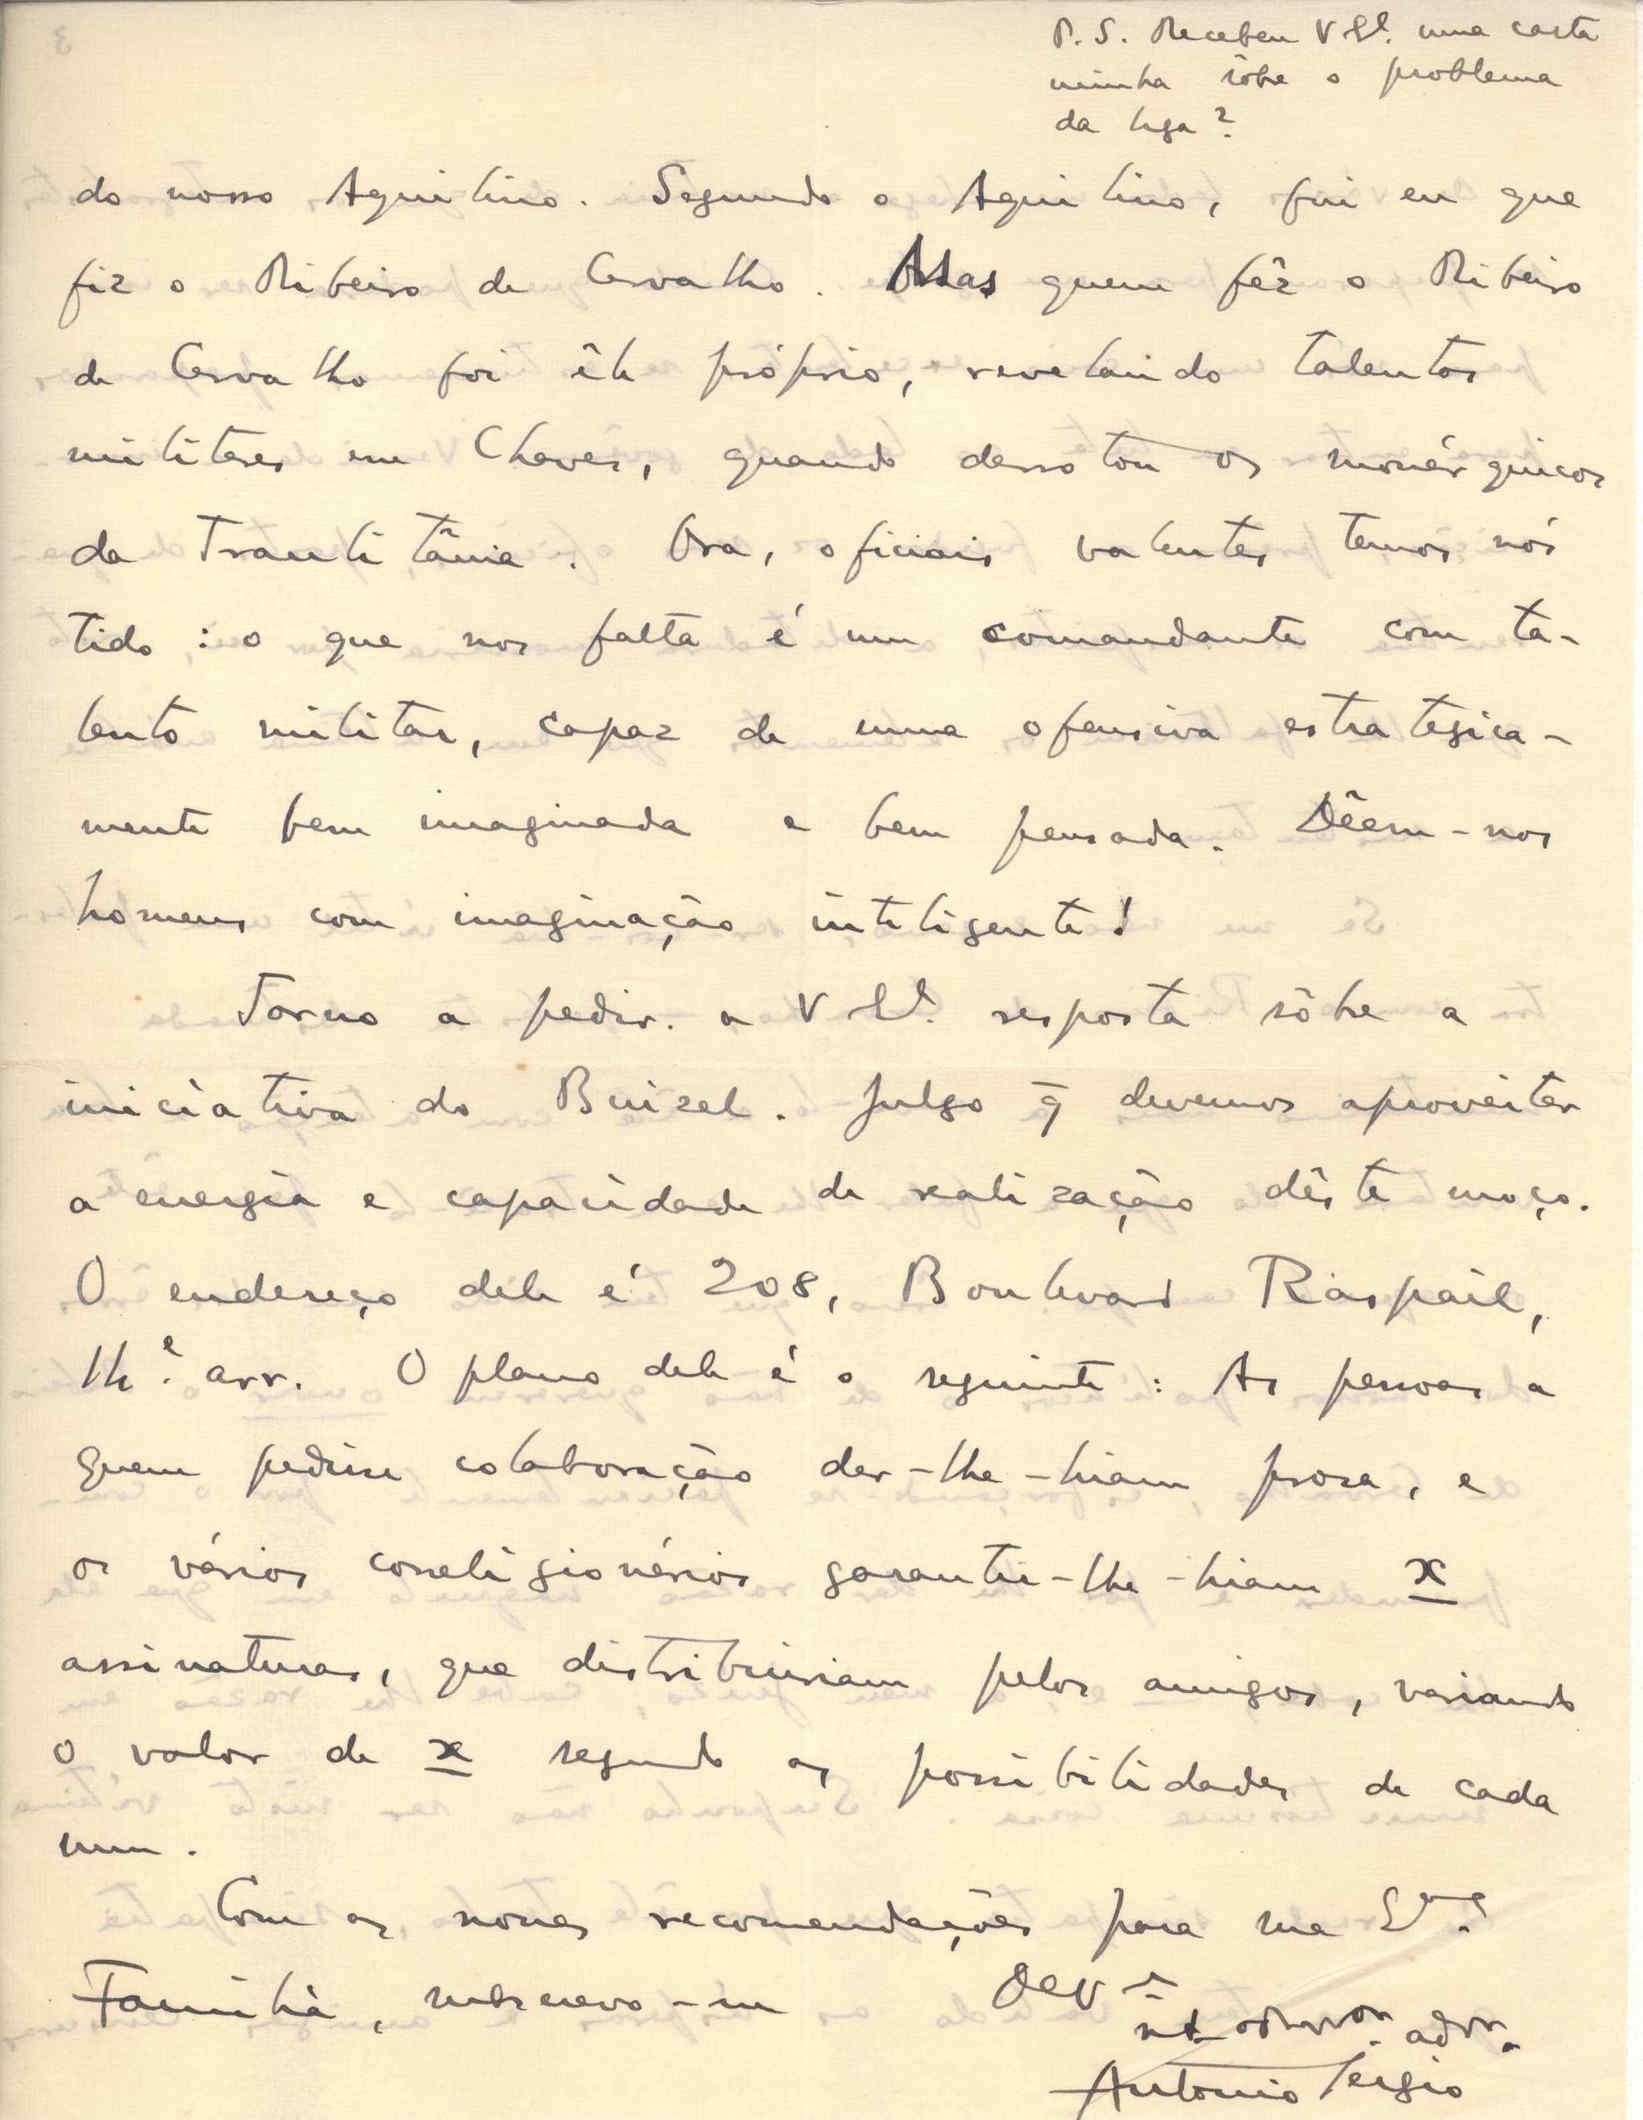 P. S. Recebeu V Ex.ª uma carta
minha sôbre o problema
da liga?
do nosso Aquilino. Segundo o Aquilino, fui eu que
fiz o Ribeiro de Carvalho. Mas quem fêz o Ribeiro
de Carvalho foi êle próprio, revelando talentos
militares em Chaves, quando derrotou os monárquicos
da Traulitânia. Ora, oficiais valentes temos nós
tido: o que nos falta é um comandante com ta-
lento militar, capaz de uma ofensiva estratègica-
mente bem imaginada e bem pensada. Dêem-nos
homens com imaginação inteligente!
Torno a pedir a V Ex.ª resposta sôbre a
iniciativa do Buisel. Julgo q̄ devemos aproveitar
a energia e capacidade de realização dêste moço.
O endereço dele é 208, Boulevard Raspail,
14.e arr. O plano dele é o seguinte: As pessoas a
quem pedisse colaboração dar-lhe-hiam prosa, e
os vários correligionários garantir-lhe-hiam x
assinaturas, que distribuiriam pelos amigos, variando
o valor de x segundo as possibilidades de cada
um.
Com as nossas recomendações para sua Ex.ma
Família, subscrevo-me
adm.or
António Sérgio